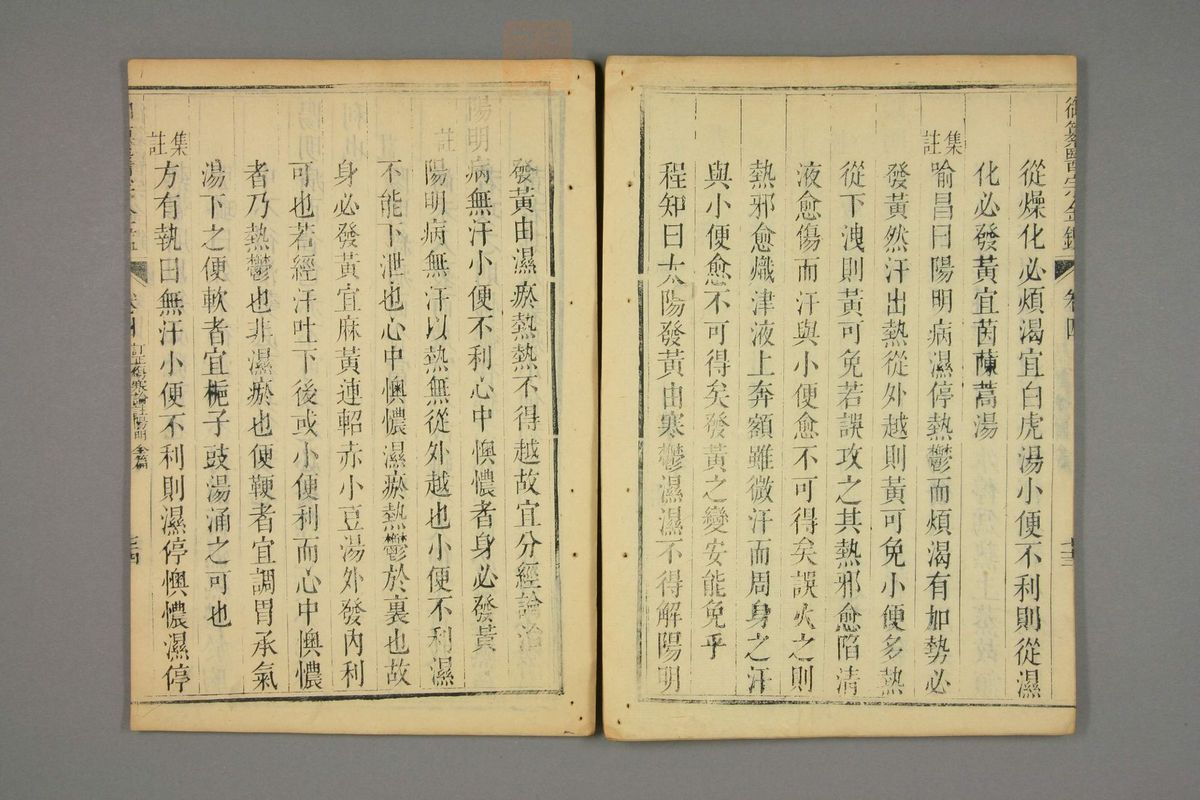 御纂醫宗金鑑 卷四
從燥化必煩渴宜白虎湯小便不利則從濕
化必發黃宜茵蔯蒿湯
集註 喻昌曰陽明病濕停熱鬱而煩渴有加勢必
發黃然汗出熱從外越則黃可免小便多熱
從下洩則黃可免若誤攻之其熱邪愈陷清
液愈傷而汗與小便愈不可得矣誤火之則
熱邪愈熾津液上奔額雖微汗而周身之汗
與小便愈不可得矣發黃之變安能免乎
程知曰太陽發黃由寒鬱濕濕不得解陽明
發黃由濕瘀熱熱不得越故宜分經論治
陽明病無汗小便不利心中懊憹者身必發黃
註 陽明病無汗以熱無從外越也小便不利濕
不能下泄也心中懊憹濕瘀熱鬱於裏也故
身必發黃宜麻黃連軺赤小豆湯外發內利
可也若經汗吐下後或小便利而心中懊憹
者乃熱鬱也非濕瘀也便鞕者宜調胃承氣
湯下之便軟者宜梔子豉湯涌之可也
集註 方有執曰無汗小便不利則濕停懊憹濕停
卷四 訂正傷寒論註陽明全篇